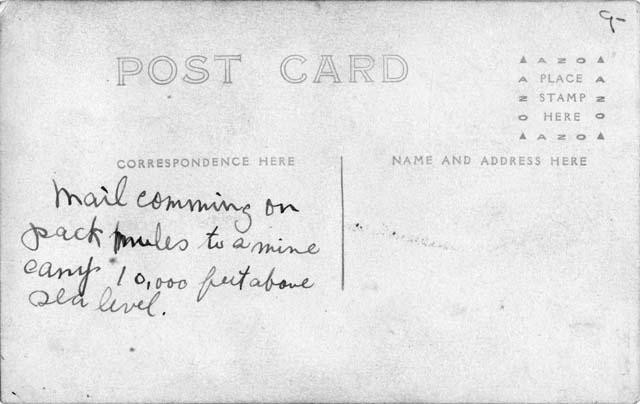 9-
POST CARD
AZO
PLACE
STAMP
HERE
AZO
CORRESPONDENCE HERE
NAME AND ADDRESS HERE
Mail comming on
pack mules to a mine
camp 10,000 feet above
sea level.